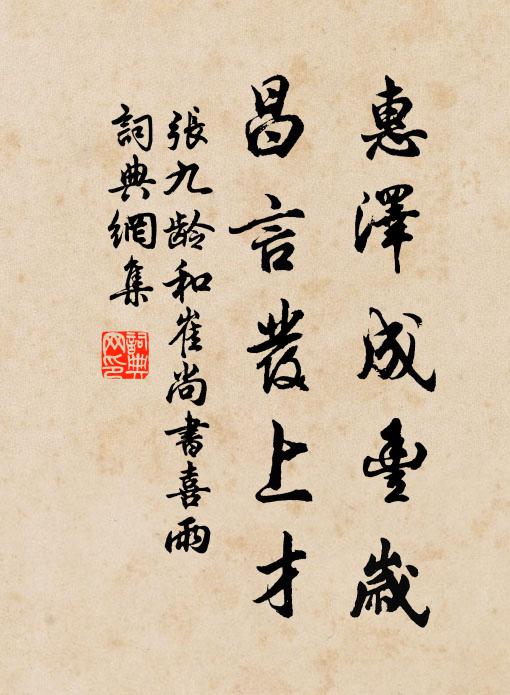 惠澤成豊歲
昌言發上才
張九齡和崔尚書喜雨
詞典網集
詞典網印